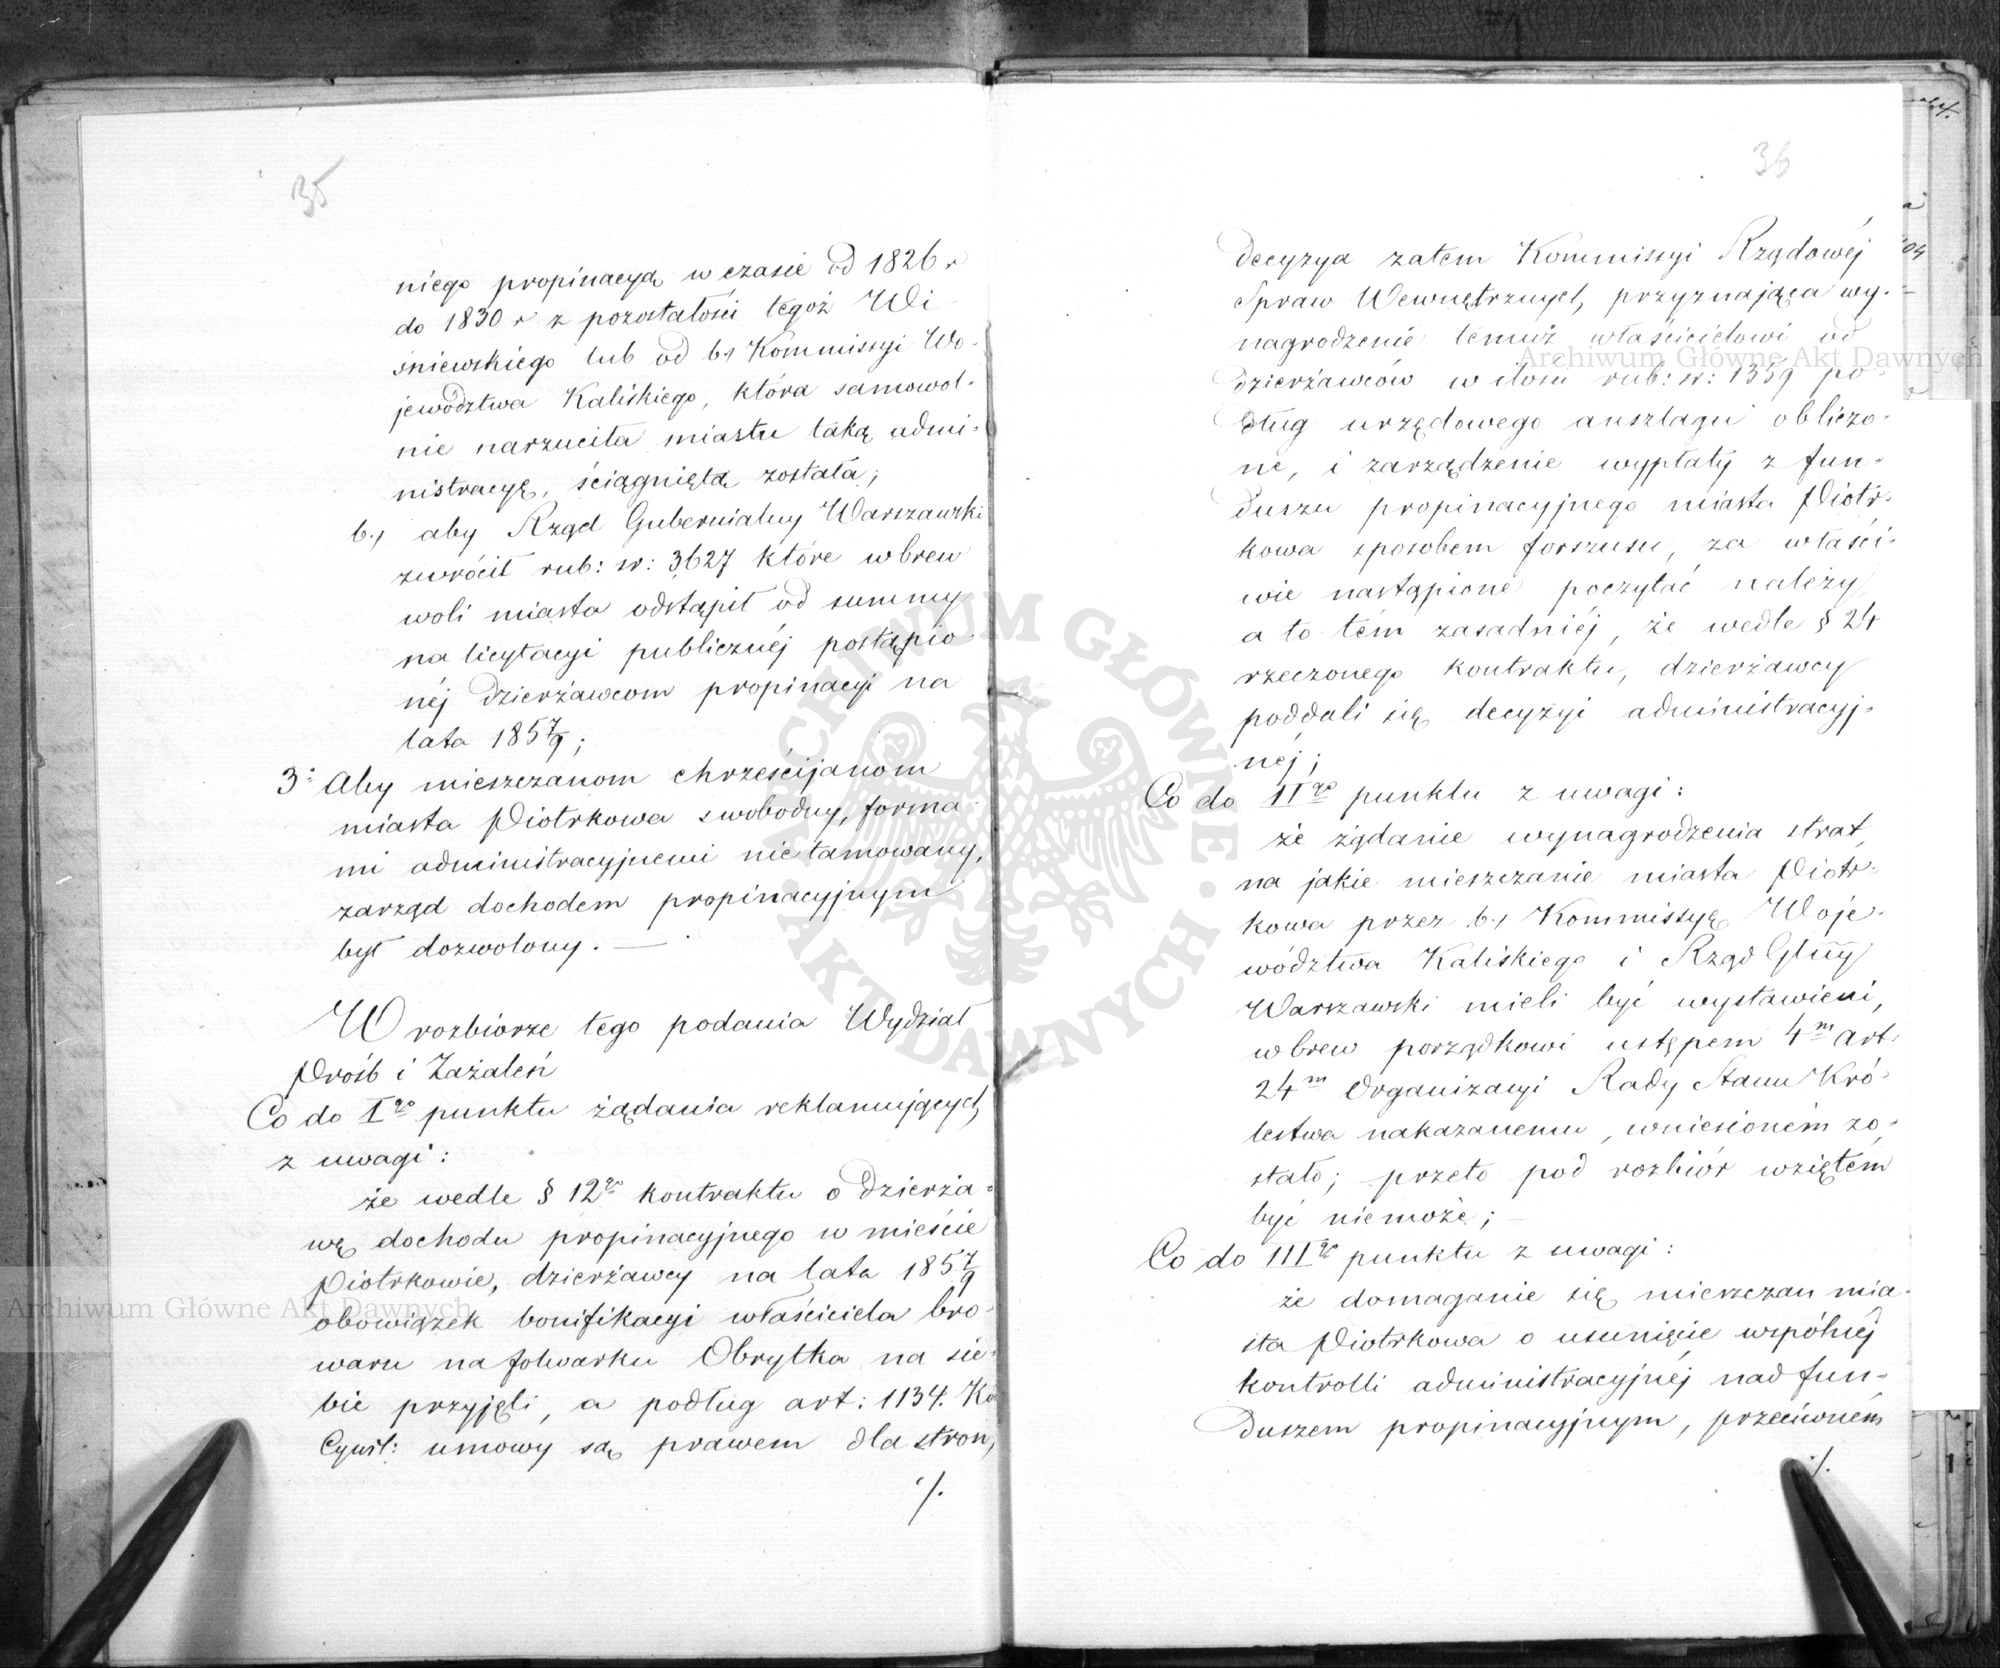 35
niego propinacyą w czasie od 1826 r
do 1830 r z pozostałości tegoż Wi
śniewskiego lub od b. Kommissyi Wo-
jewództwa Kaliskiego, która samowol-
nie narzuciła miastu taką admi-
nistracyę, ściągniętą została;
b., aby Rząd Gubernialny Warszawski
zwrócił rub: sr: 3627 które wbrew
woli miasta odstąpił od summy
na licytacyi publicznéj postąpio-
néj dzierżawcom propinacyi na
lata 1857/9;
3° Aby mieszczanom chrześcijanom
miasta Piotrkowa swobodny, forma-
mi administracyjnemi nietamowany,
zarząd dochodem propinacyjnym
był dozwolony. —
W rozbiorze tego podania Wydział
Prośb i Zażaleń
Co do I go punktu żądania reklamujących
z uwagi:
że wedle § 12 go kontraktu o dzierża-
wę dochodu propinacyjnego w mieście
Piotrkowie, dzierżawcy na lata 1857/9
obowiązek bonifikacyi właściciela bro-
waru na folwarku Obrytka na sie-
bie przyjęli, a podług art: 1134. Ko
Cywil: umowy są prawem dla stron,
./.
36
Decyzya zatem Kommissyi Rządowéj
Spraw Wewnętrznych, przyznająca wy-
nagrodzenie temuż właścicielowi od
dzierżawców w ilości rub: sr: 1359 po-
dług urzędowego anszlagu obliczo-
ne, i zarządzenie wypłaty z fun-
duszu propinacyjnego miasta Piotr-
kowa sposobem forszusu, za właści-
wie nastąpione poczytać należy
a to tém zasadniéj, że wedle § 24
rzeczonego kontraktu, dzierżawcy
poddali się decyzyi administracyj-
néj;
Co do II go punktu z uwagi:
że żądanie wynagrodzenia strat,
na jakie mieszczanie miasta Piotr-
kowa przez b., Kommissyę Woje-
wództwa Kaliskiego i Rząd Glny
Warszawski mieli być wystawieni,
wbrew porządkowi ustępem 4 m art:
24 m Organizacyi Rady Stanu Kró-
lestwa nakazanemu, wniesioném zo-
stało; przeto pod rozbiór wziętém
być niemoże; —
Co do III go punktu z uwagi:
że domaganie się mieszczan mia-
sta Piotrkowa o usunięcie wspólnéj
kontrolli administracyjnéj nad fun-
duszem propinacyjnym, przeciwném
./.
Archiwum Główne Akt Dawnych
Archiwum Główne Akt Dawnych
ARCHIWUM GŁÓWNE · AKT DAWNYCH ·